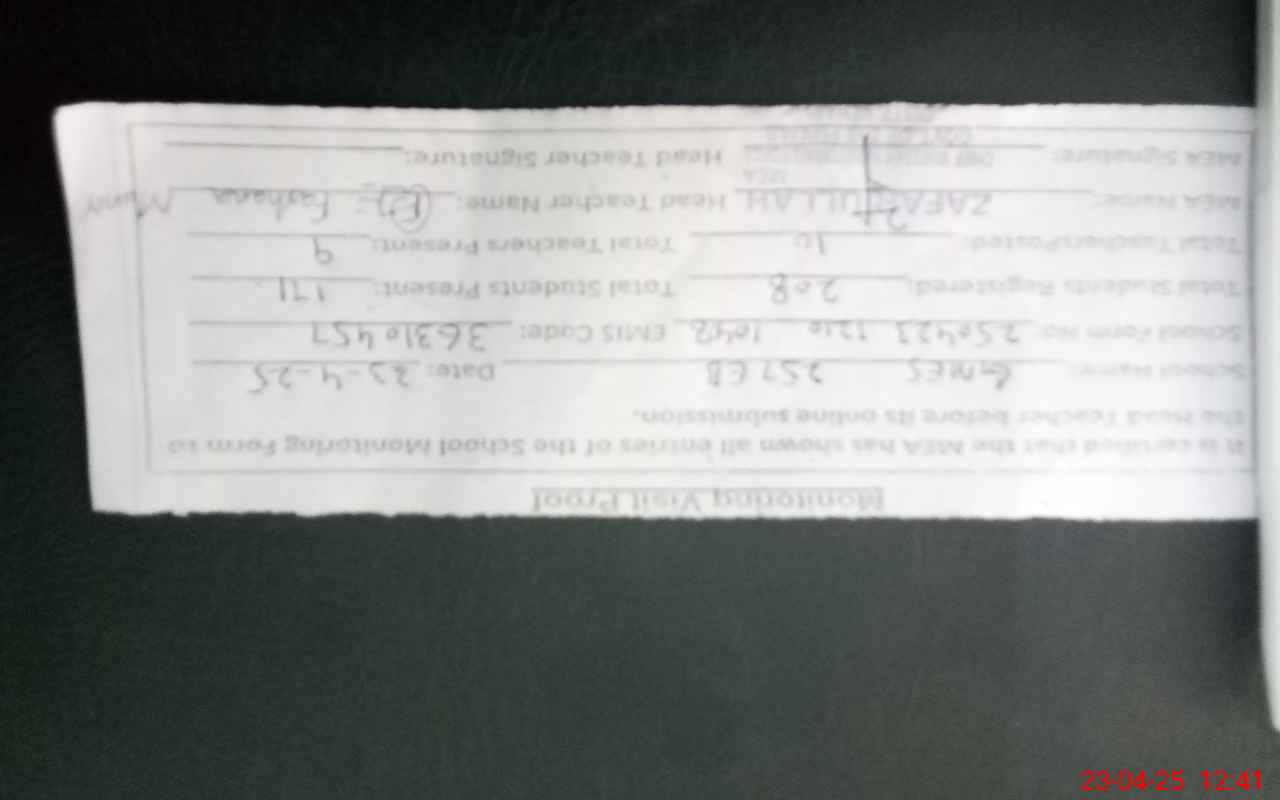 Monitoring Visit Proof
It is certified that the MEA has shown all entries of the School Monitoring Form to
the Head Teacher before its online submission.
School Name: GMES 257 EB Date: 23-4-25
School Form No: 250423 1210 1048 EMIS Code: 36310457
Total Students Registered: 208 Total Students Present: 171
Total Teachers Posted: 10 Total Teachers Present: 9
MEA Name: ZAFAR ULLAH Head Teacher Name: Farhana
MEA Signature: Head Teacher Signature:
MEA
23-04-25 12:41